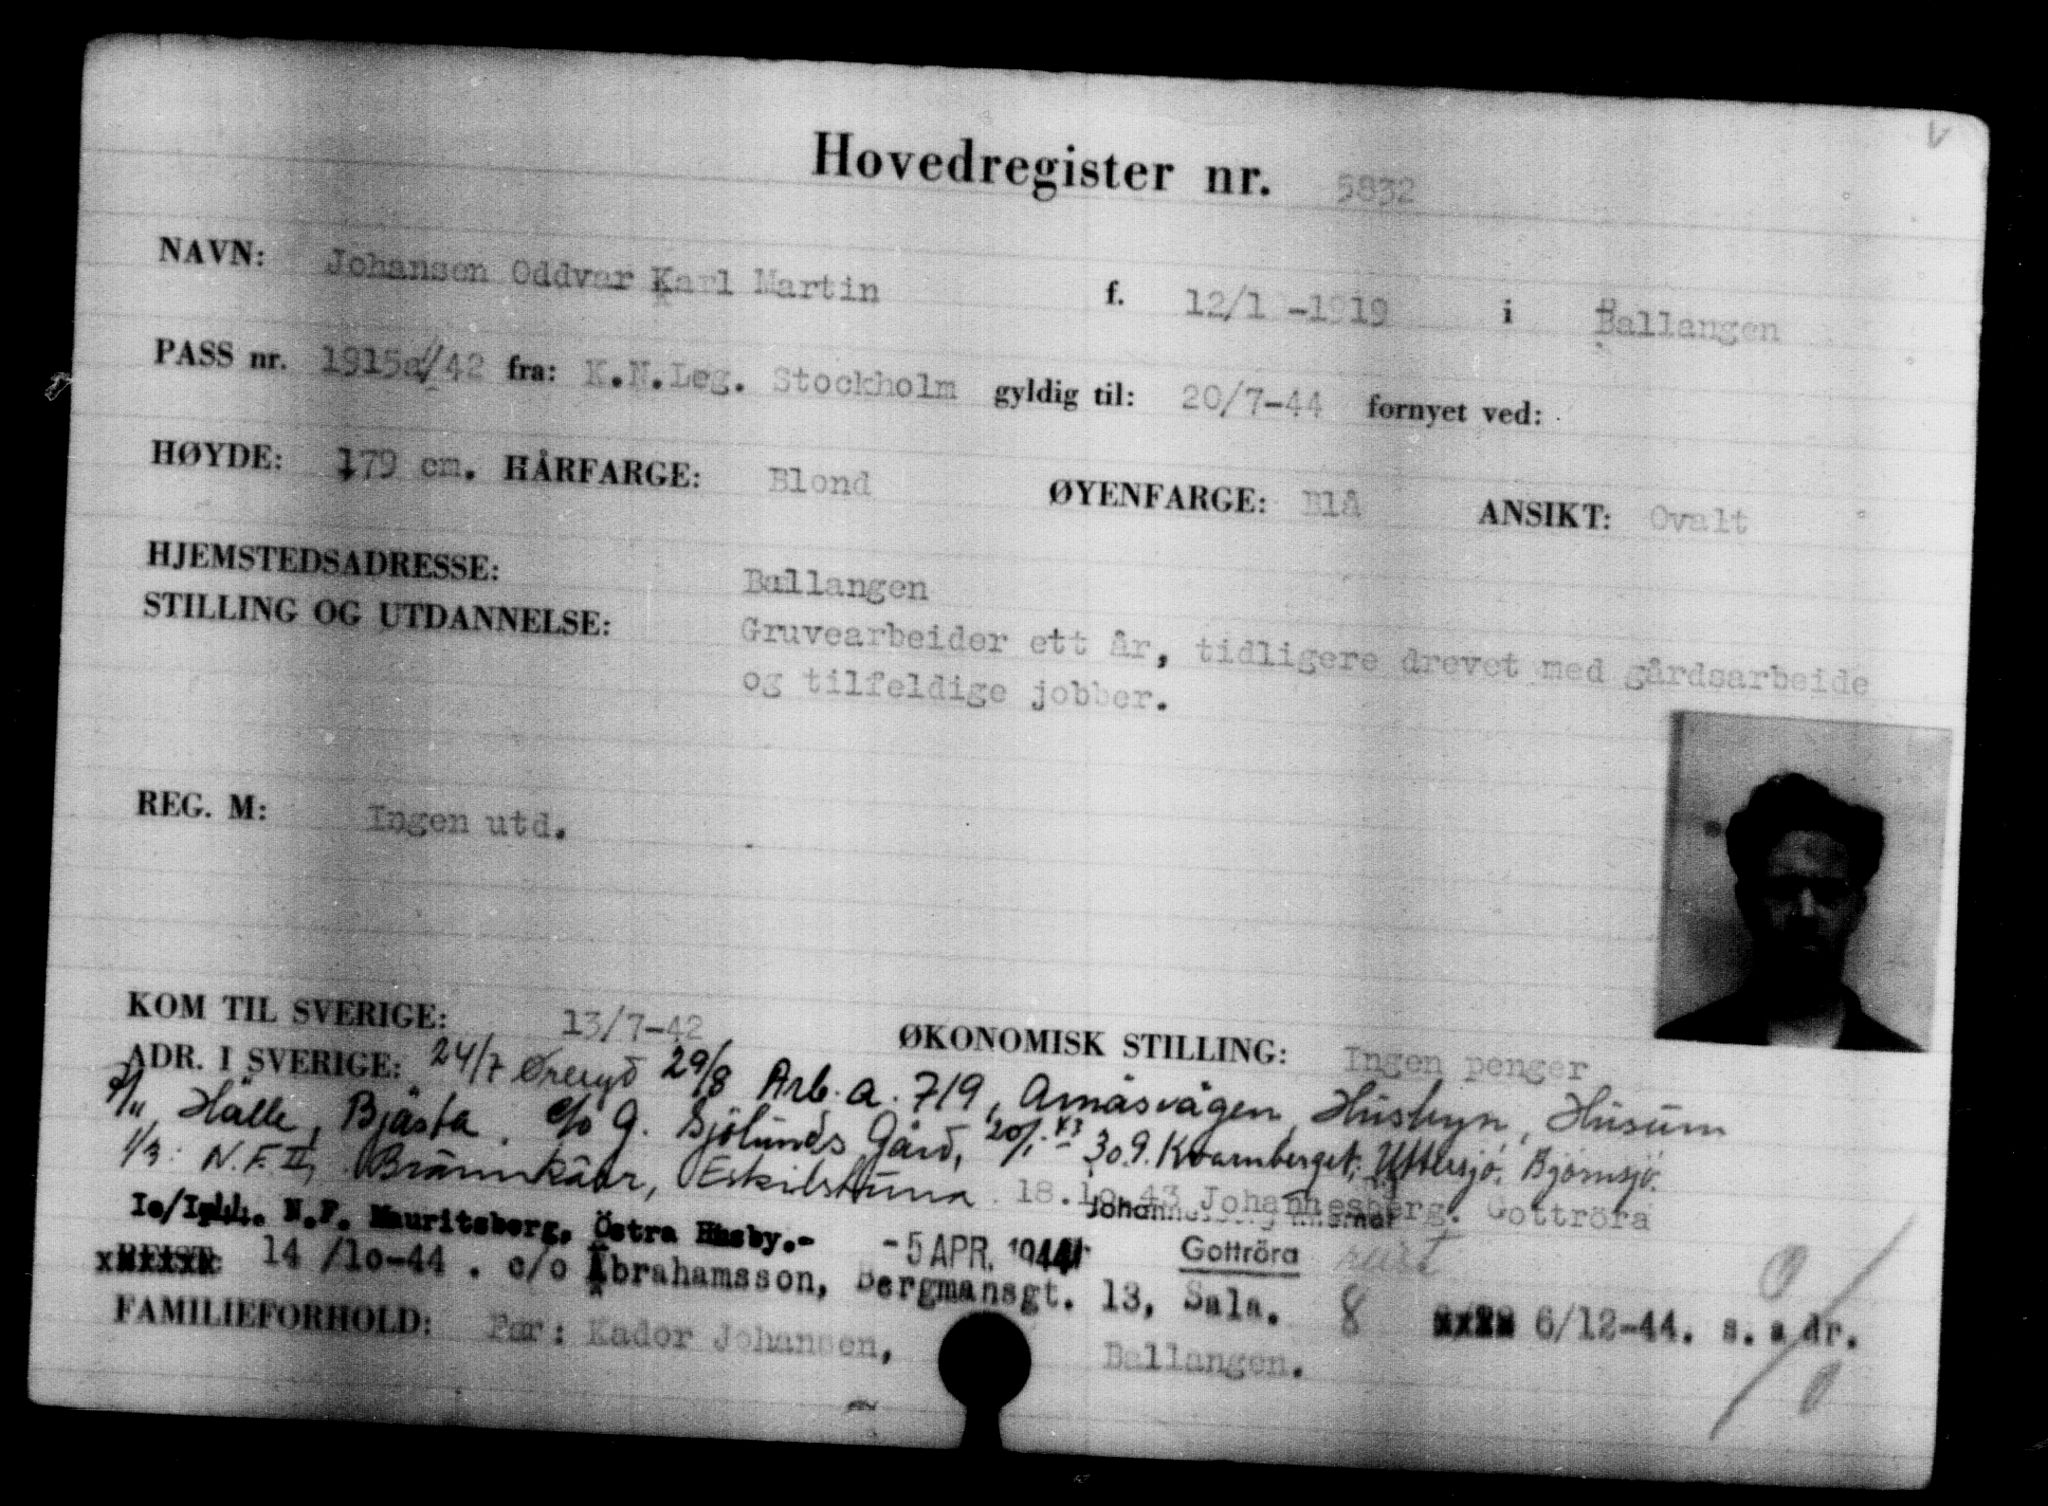 Hovedregister nr. 5832
NAVN: Johansen Oddvar Karl Martin f. 12/1 -1919 i Ballangen
PASS nr. 1915a/42 fra: K.N.Leg. Stockholm gyldig til: 20/7-44 fornyet ved:
HØYDE: 179 cm. HÅRFARGE: Blond ØYENFARGE: Blå ANSIKT: Ovalt
HJEMSTEDSADRESSE: Ballangen
STILLING OG UTDANNELSE: Gruvearbeider ett år, tidligere drevet med gårdsarbeide
og tilfeldige jobber.
REG. M: Ingen utd.
KOM TIL SVERIGE: 13/7-42 ØKONOMISK STILLING: Ingen penger
ADR. I SVERIGE: 24/7 Øreryd 29/8 Arb. a. 719, Arnäsvägen, Husbyn, Husum
7/11 Hälle, Bjästa. c/o G. Sjölunds Gård, 20/1 43 30.9. Kvarnberget, Uttersjö, Björnsjö.
1/3: N.F. II, Brännkärr, Eskilstuna. 18.10.43 Johannesberg. Gottröra
N.F. Mauritsberg. Östra Husby.- -5 APR. 1944 Gottröra
REISE 14/10-44. c/o Abrahamsson, Bergmansgt. 13, Sala. 8 6/12-44. s. adr.
FAMILIEFORHOLD: Far: Kador Johansen, Ballangen.